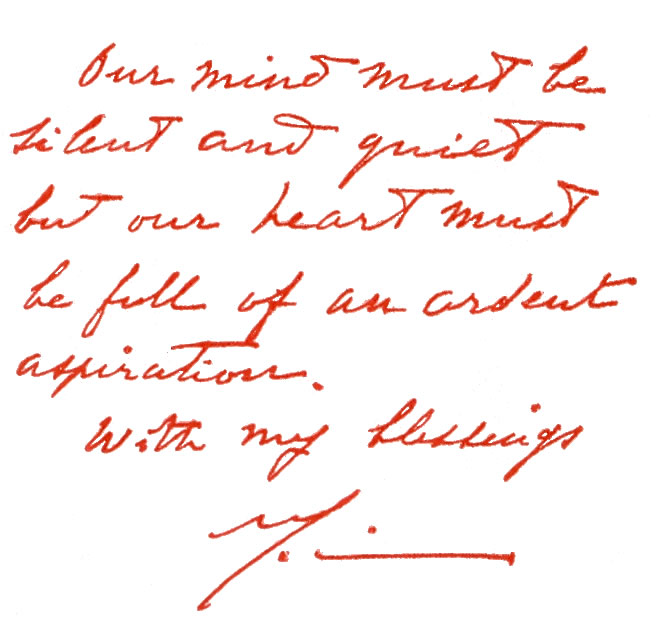 Our mind must be
silent and quiet
but our heart must
be full of an ardent
aspiration.
With my blessings